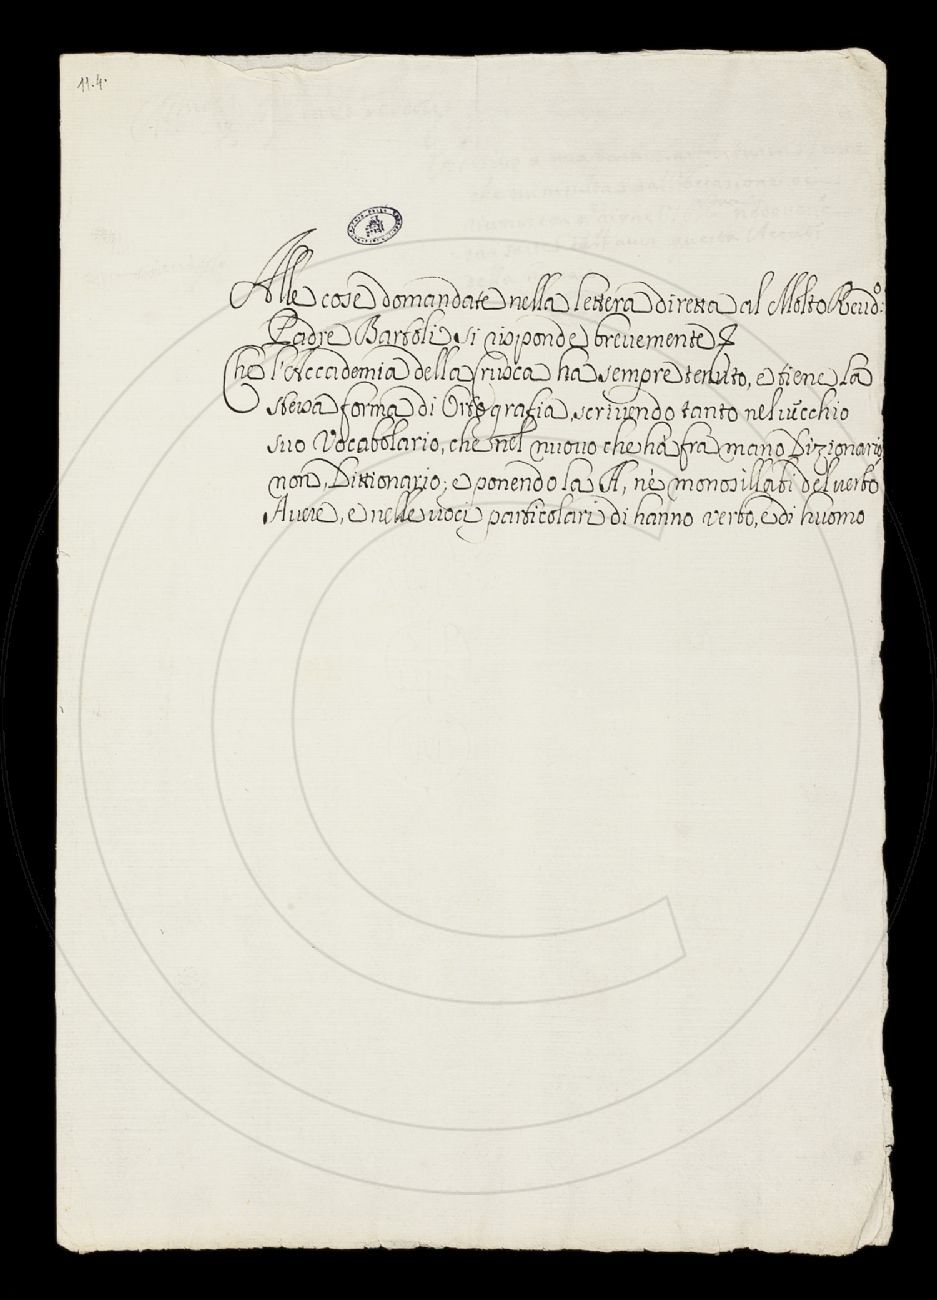 11.4.
Alle cose domandate nella lettera diretta al Molto Reud.º
Padre Bartoli si risponde breuemente
Che l'Accademia della Crusca ha sempre tenuto, e tiene la
stessa forma di Ortografia, scriuendo tanto nel uecchio
suo Vocabolario, che nel nuouo che ha fra mano Dizionario,
non Dittionario; e ponendo la A, nè monosillabi del uerbo
Auere, e nelle uoci particolari di hanno verbo, e di huomo